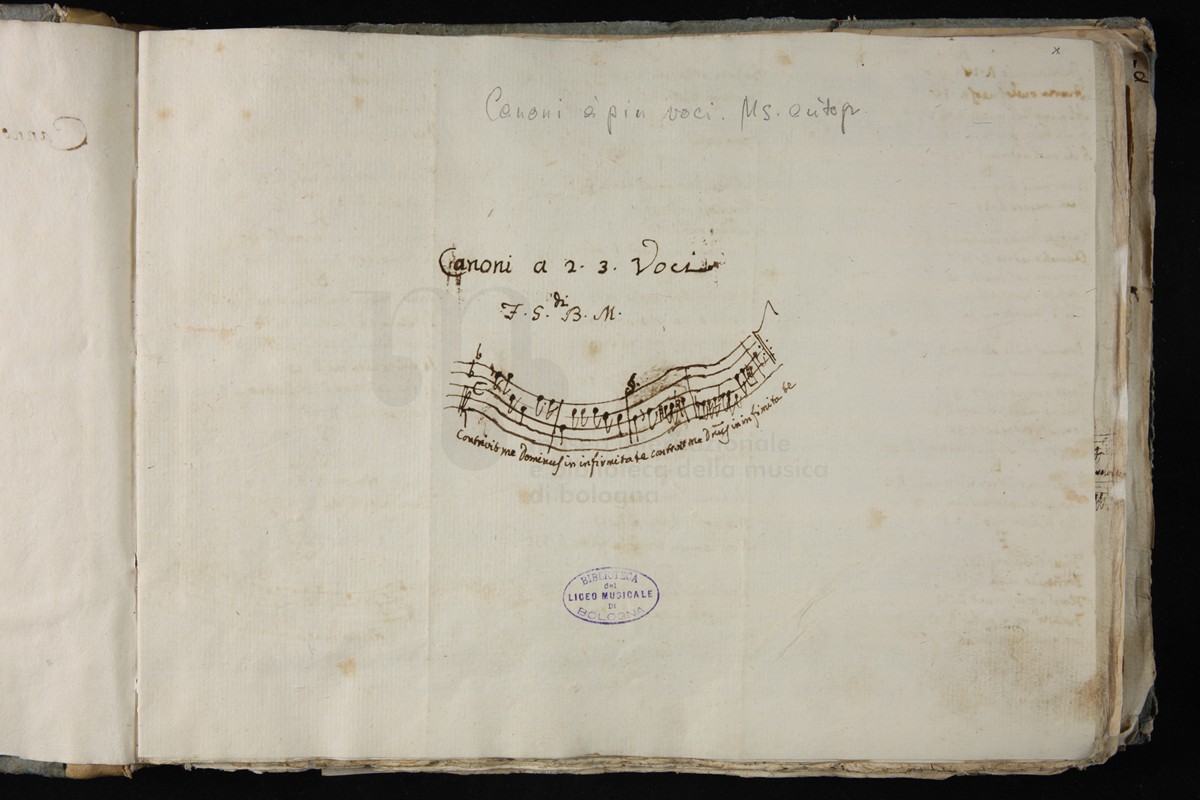 x
Canoni à più voci. Ms. autogr.
Canoni a 2. 3. Voci
F. S. di B. M.
Contrivit me Dominus in infirmitate contrivit me Dñus in infirmitate
internazionale
e biblioteca della musica
di bologna
BIBLIOTECA
del
LICEO MUSICALE
DI
BOLOGNA